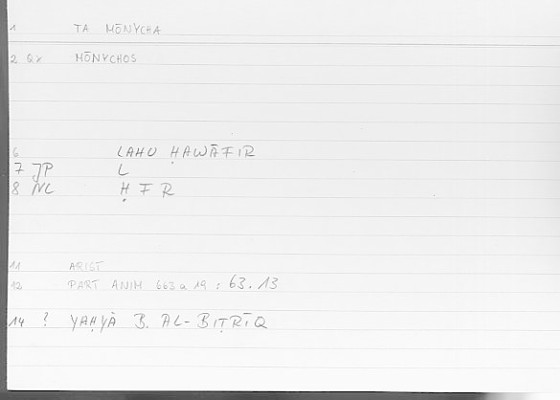 1 TA MŌNYCHA
2 QY MŌNYCHOS
6 LAHU ḤAWĀFIR
7 JP L
8 NL Ḥ F R
11 ARIST
12 PART ANIM 663 a 19 : 63.13
14 ? YAḤYÀ B. AL-BIṬRĪQ